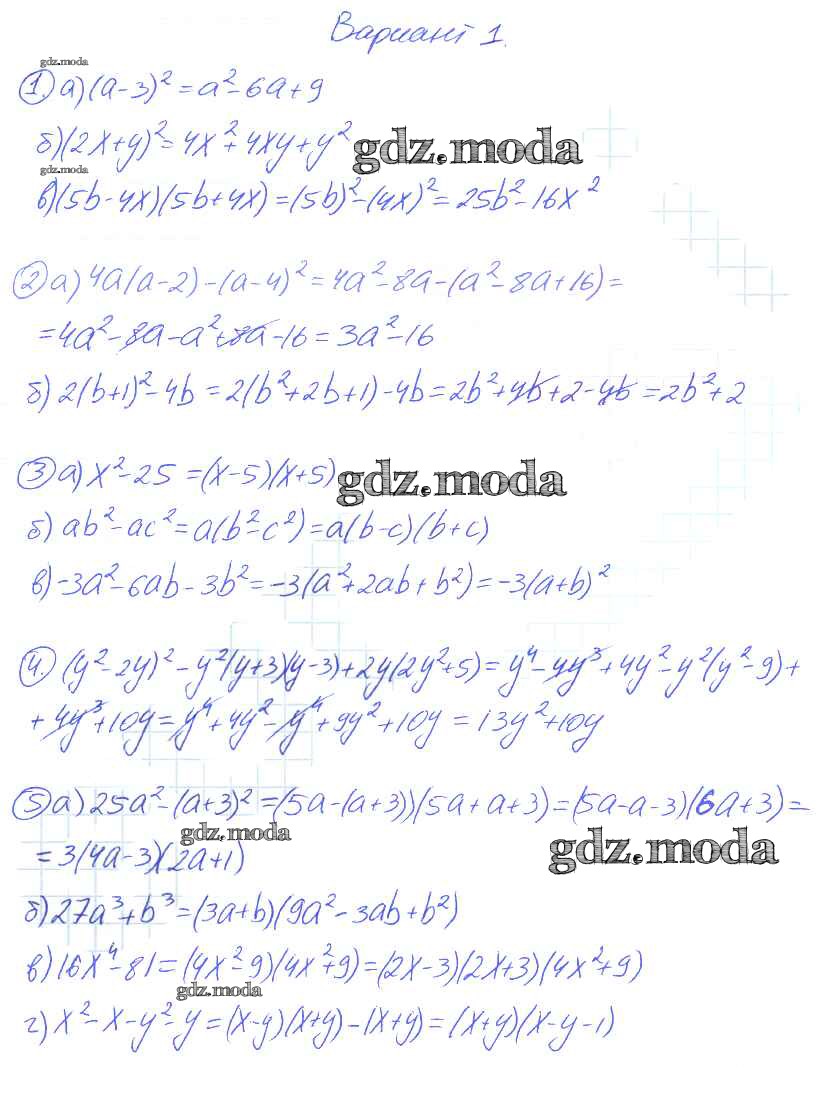 Вариант 1.
gdz.moda
1. а) (a-3)² = a²-6a+9
б) (2x+y)² = 4x²+4xy+y²
gdz.moda
gdz.moda
в) (5b-4x)(5b+4x) = (5b)²-(4x)² = 25b²-16x²
2 а) 4a(a-2)-(a-4)² = 4a²-8a-(a²-8a+16) =
= 4a²-8a-a²+8a-16 = 3a²-16
б) 2(b+1)²-4b = 2(b²+2b+1)-4b = 2b²+4b+2-4b = 2b²+2
3 а) x²-25 = (x-5)(x+5)
gdz.moda
б) ab²-ac² = a(b²-c²) = a(b-c)(b+c)
в) -3a²-6ab-3b² = -3(a²+2ab+b²) = -3(a+b)²
4. (y²-2y)²-y²(y+3)(y-3)+2y(2y²+5) = y⁴-4y³+4y²-y²(y²-9)+
+4y³+10y = y⁴+4y²-y⁴+9y²+10y = 13y²+10y
5 а) 25a²-(a+3)² = (5a-(a+3))(5a+a+3) = (5a-a-3)(6a+3) =
gdz.moda
= 3(4a-3)(2a+1)
gdz.moda
б) 27a³+b³ = (3a+b)(9a²-3ab+b²)
в) 16x⁴-81 = (4x²-9)(4x²+9) = (2x-3)(2x+3)(4x²+9)
gdz.moda
г) x²-x-y²-y = (x-y)(x+y)-(x+y) = (x+y)(x-y-1)